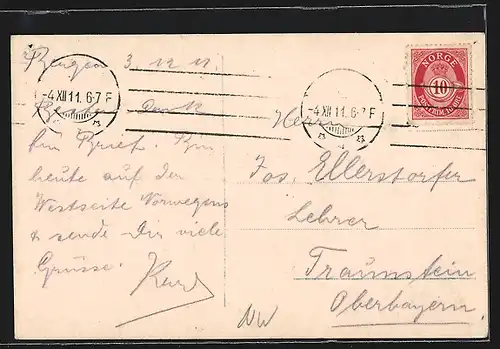 Bergen 3 12 11
Besten Dank
für Brief. Bin
heute auf der
Westseite Norwegens
& sende Dir viele
Grüsse. Karl
-4 XII 11. 6-7 F
-4 XII 11. 6-7 F
NORGE
10
Herrn
Jos. Ellerstorfer
Lehrer
Traunstein
Oberbayern.
NW